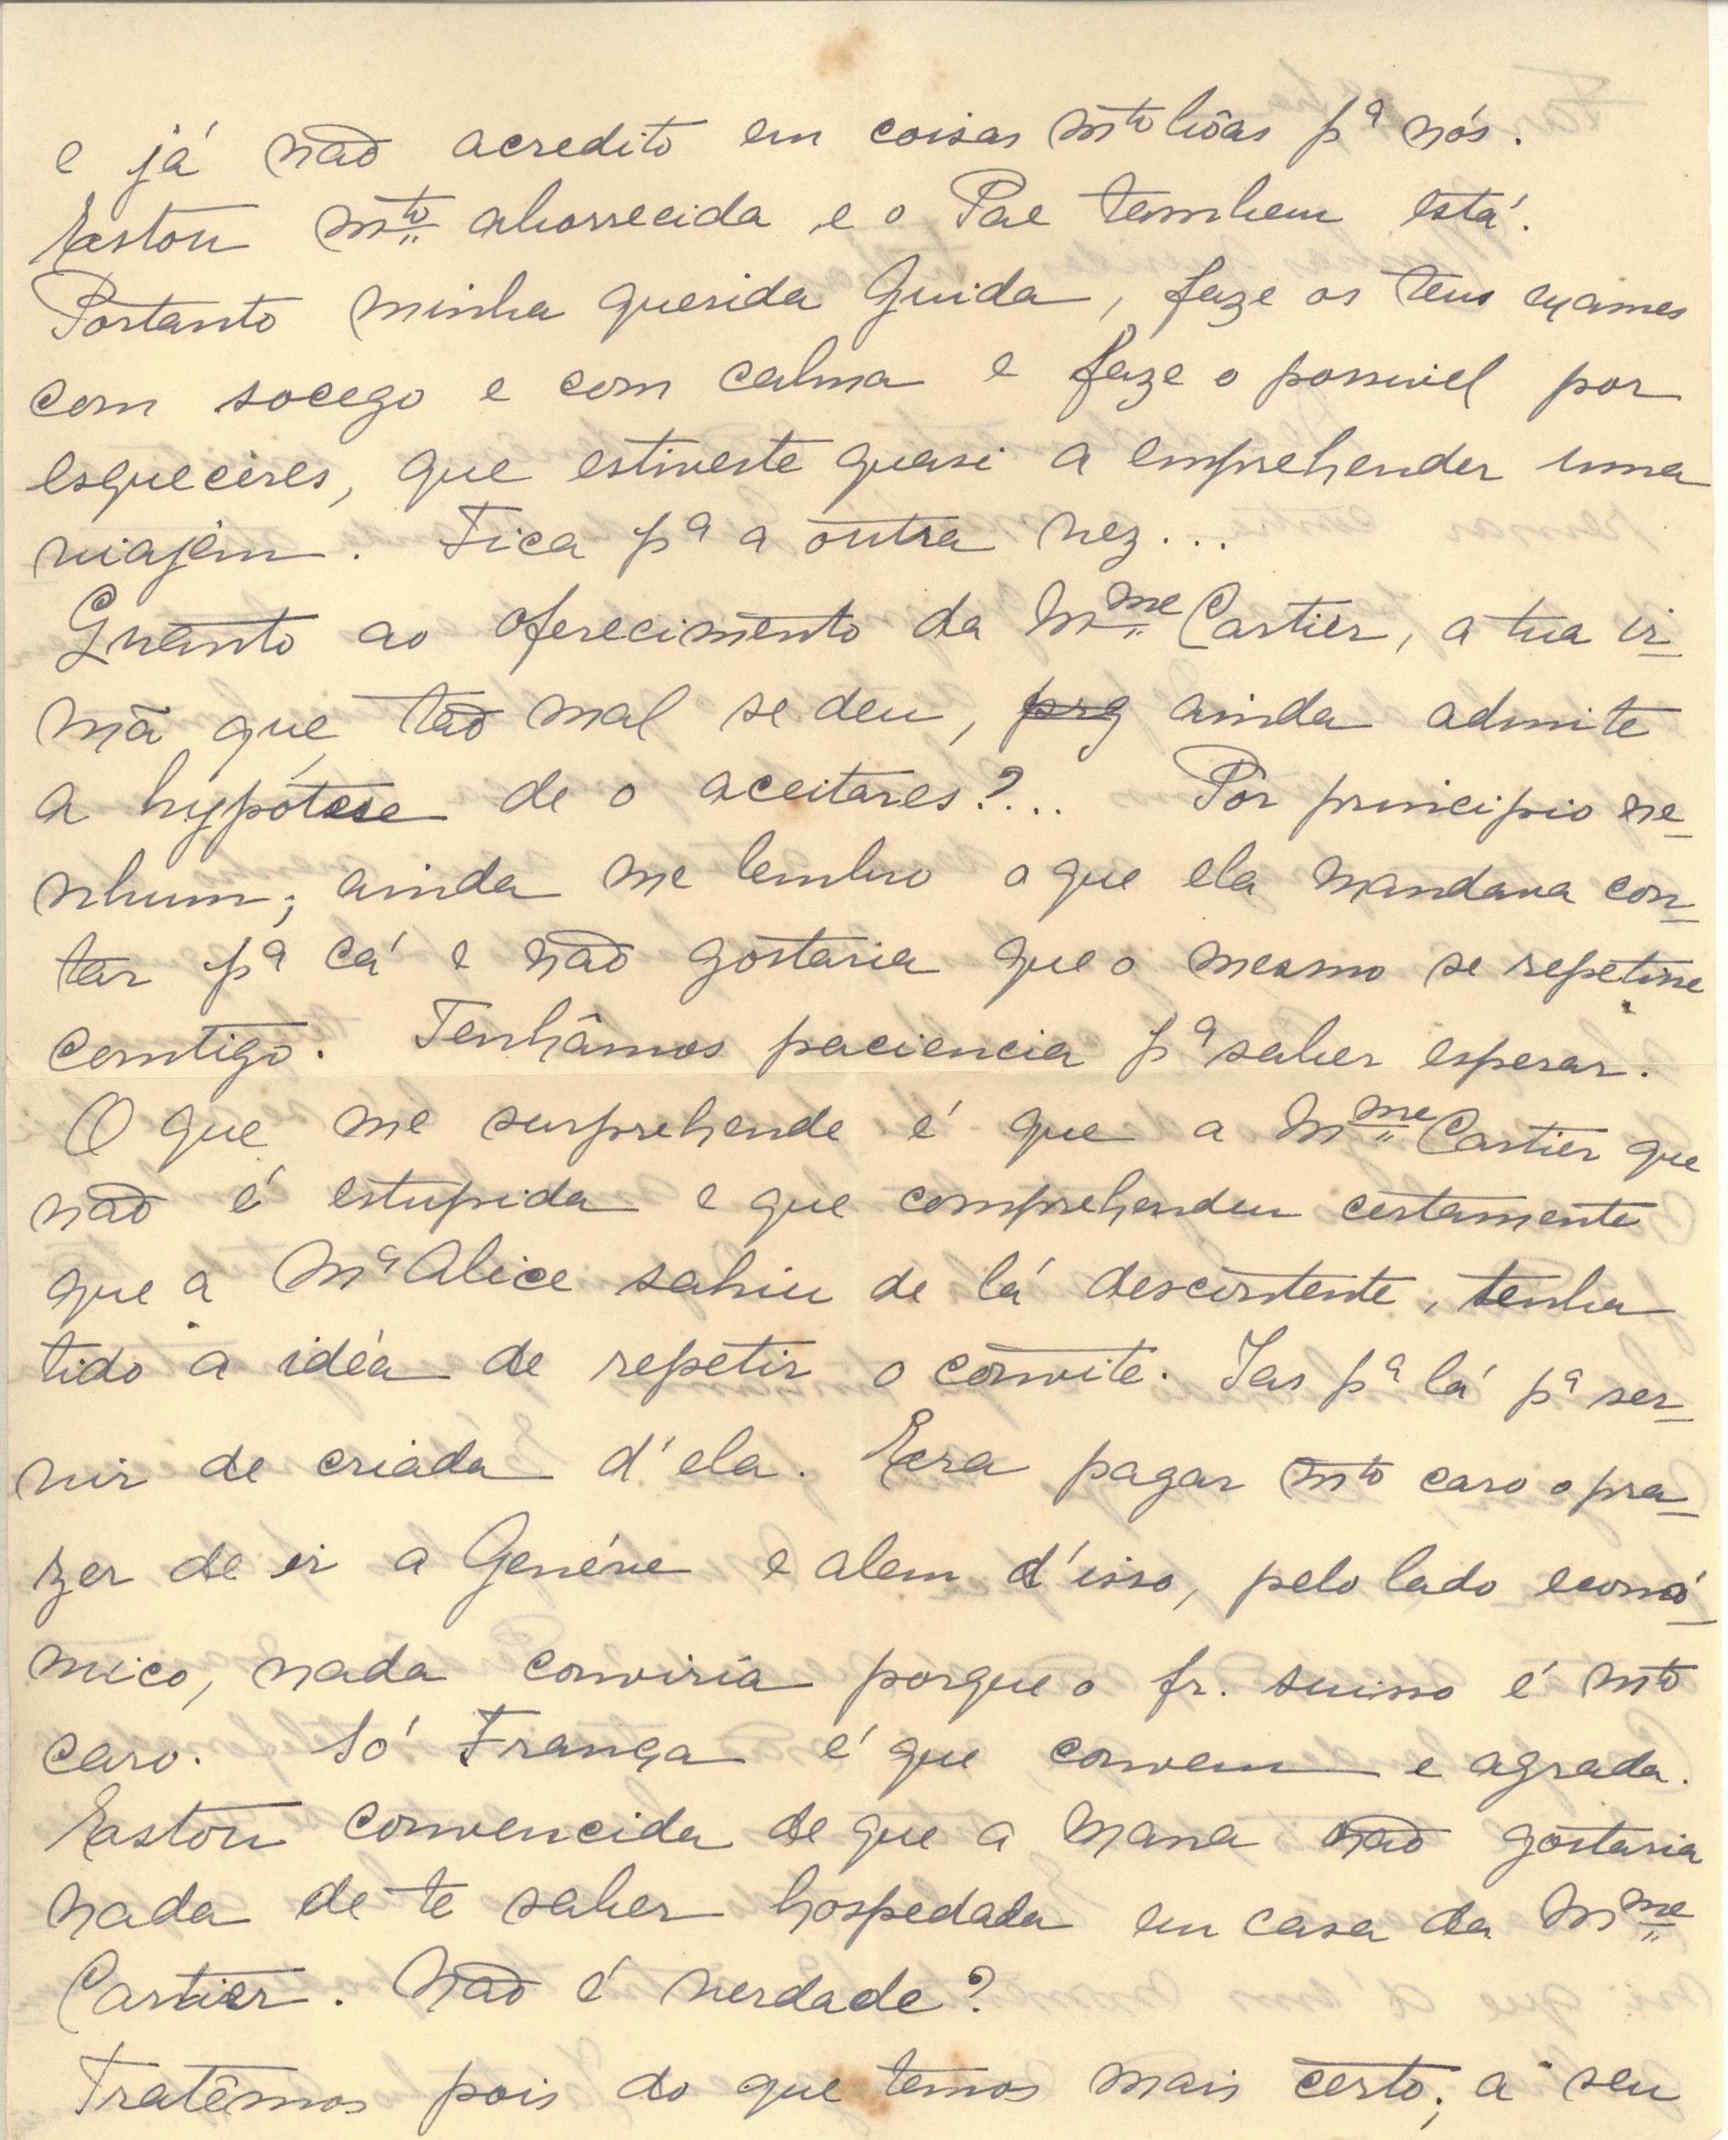 e já não acredito em coisas mto bôas pª nós.
Estou mto aborrecida e o Pae tambem está.
Portanto minha querida Guida, faze os teus exames
com socego e com calma e faze o possivel por
esqueceres, que estiveste quasi a emprehender uma
viajem. Fica pª a outra vez...
Quanto ao oferecimento da Mme Cartier, a tua ir-
mã que tão mal se deu, prq ainda admite
a hypótese de o aceitares?... Por principio ne-
nhum; ainda me lembro o que ela mandava con-
tar pª cá e não gostaria que o mesmo se repetisse
comtigo. Tenhâmos paciencia pª saber esperar.
O que me surprehende é que a Mme Cartier que
não é estupida e que comprehendeu certamente
que a Mª Alice sahiu de lá descontente, tenha
tido a idéa de repetir o convite. Ias pª lá pª ser-
vir de criáda d'ela. Era pagar mto caro o pra-
zer de ir a Genéve e alem d'isso, pelo lado econó-
mico, nada conviria porque o fr. suisso é mto
caro. Só França é que convem e agrada.
Estou convencida de que a Mana não gostaria
nada de te saber hospedada em casa da Mme
Cartier. Não é verdade?
Tratêmos pois do que temos mais certo; a seu